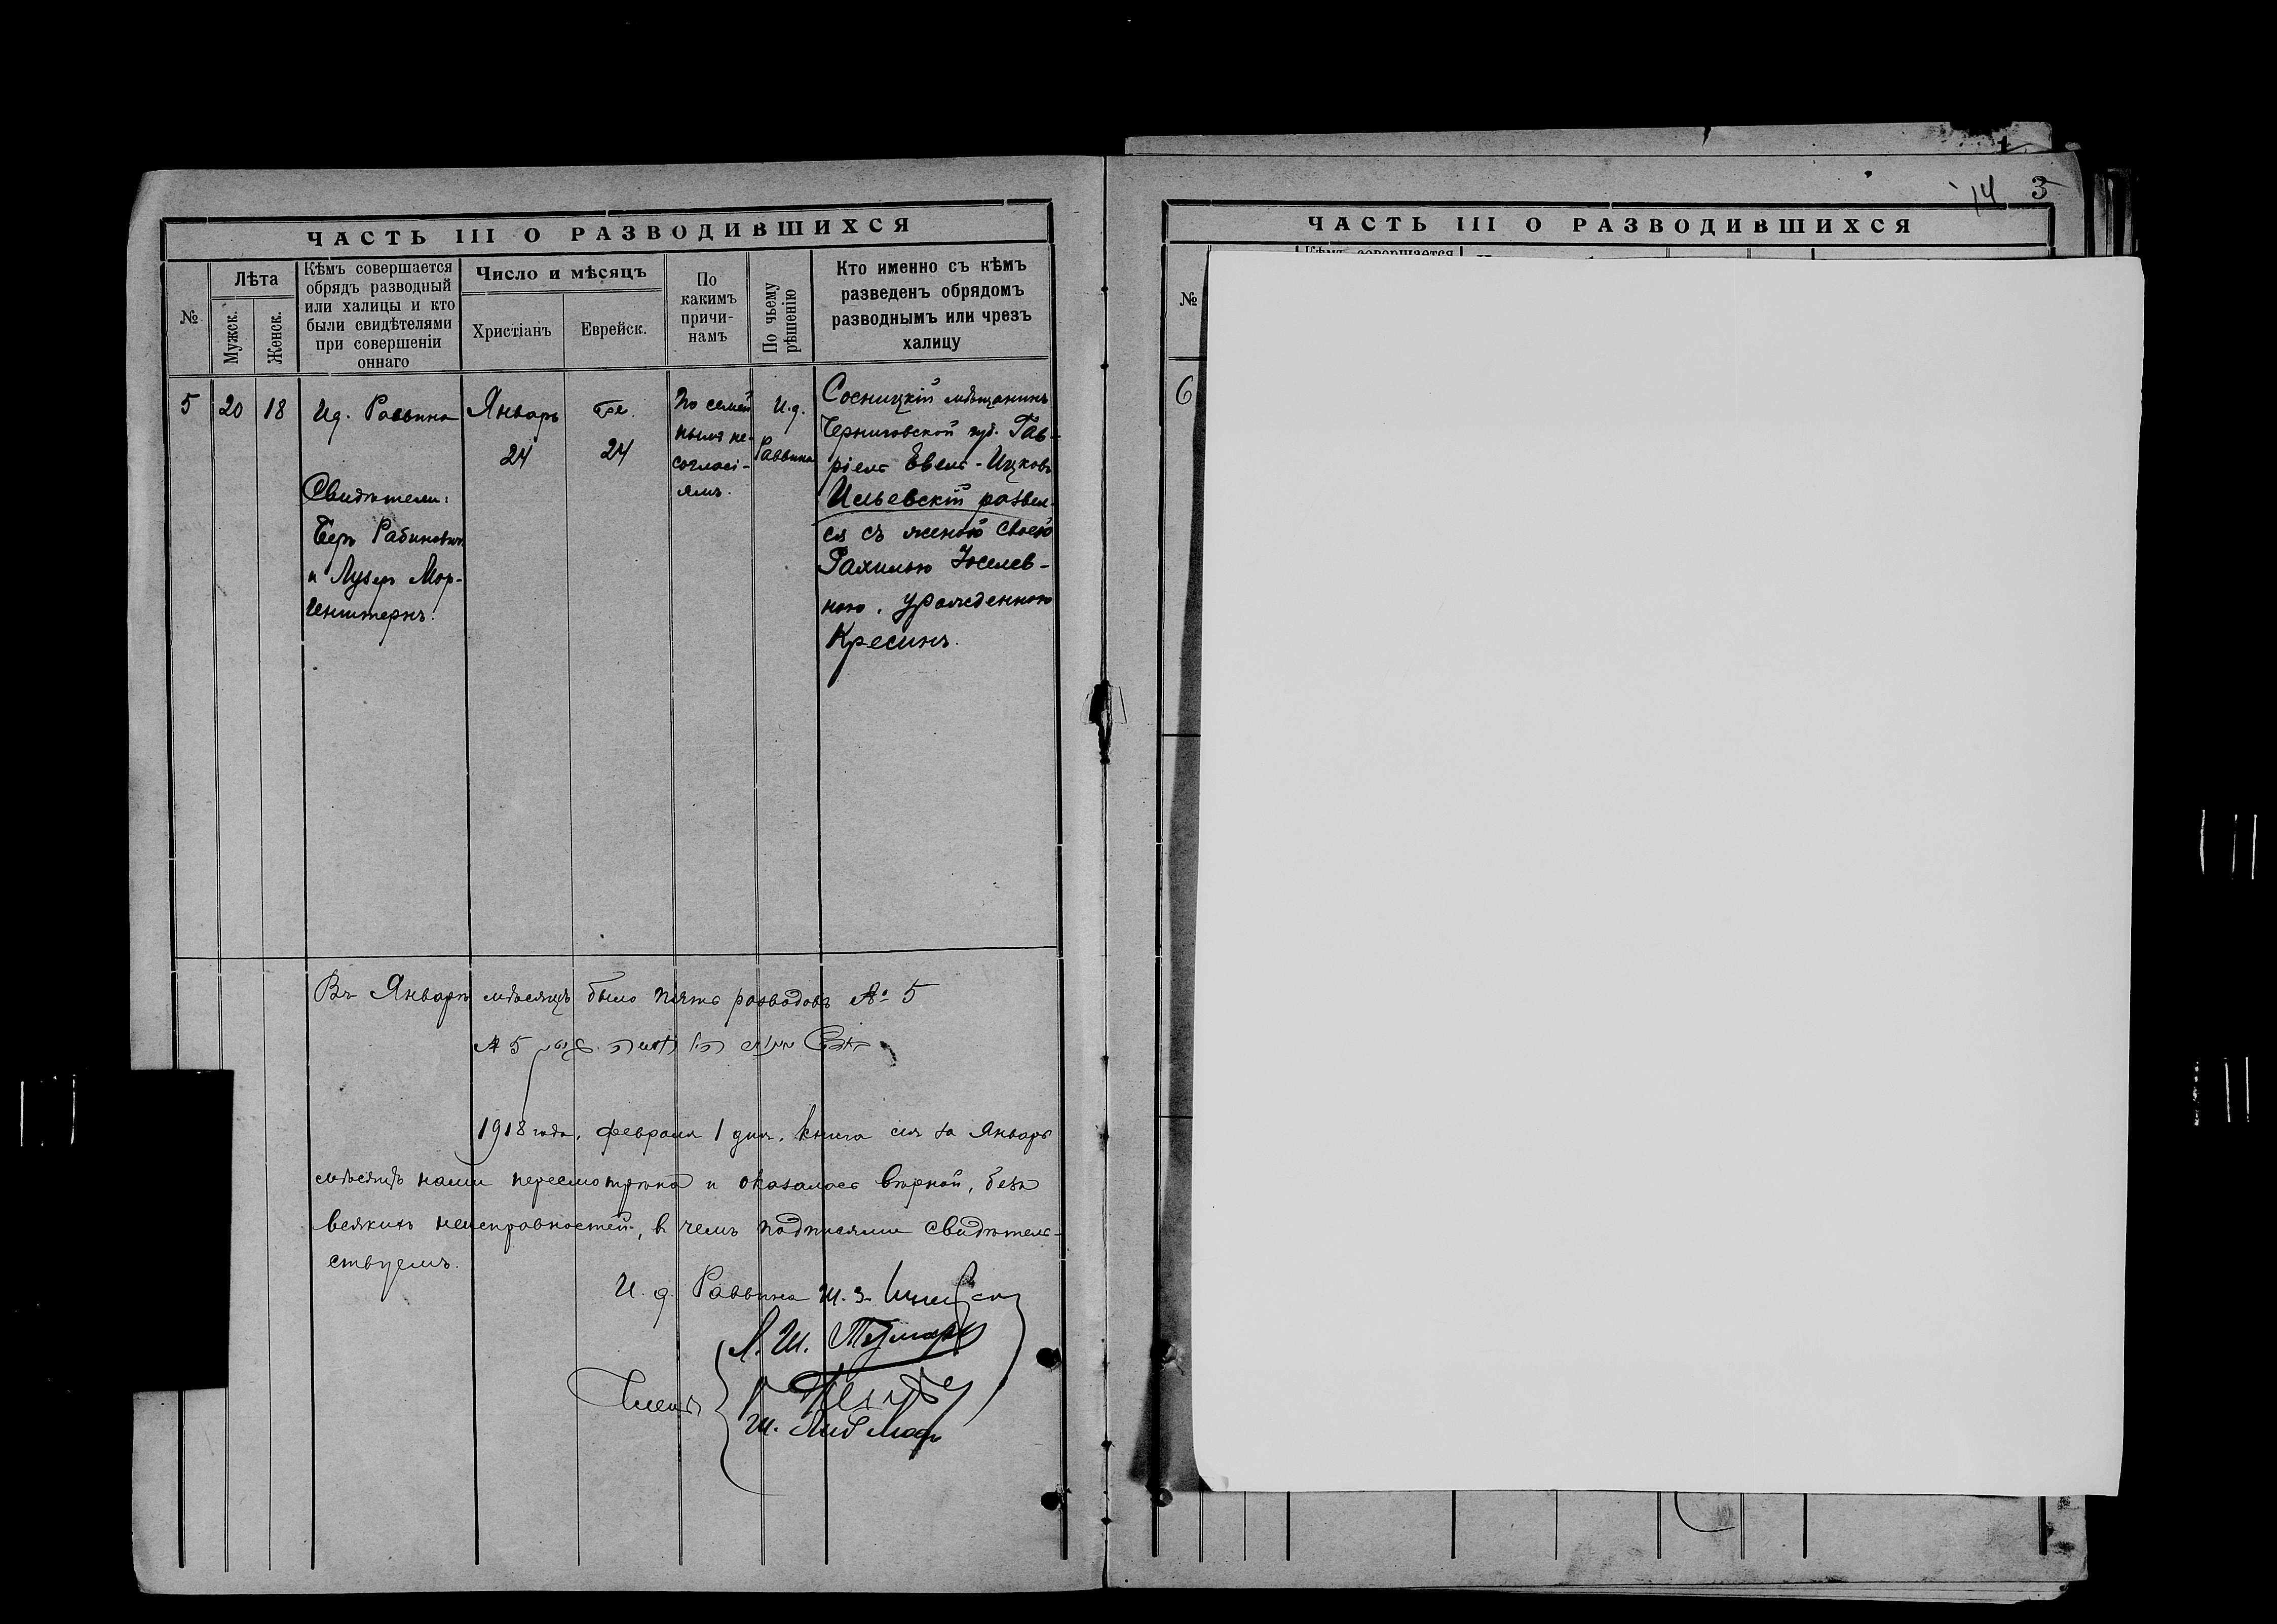 ЧАСТЬ III О РАЗВОДИВШИХСЯ
№
Лѣта
Мужск.
Женск.
Кѣмъ совершается
обрядъ разводный
или халицы и кто
были свидѣтелями
при совершеніи
оннаго
Число и мѣсяцъ
Христіанъ
Еврейск.
По
какимъ
причи-
намъ
По чьему
рѣшенію
Кто именно съ кѣмъ
разведенъ обрядомъ
разводнымъ или чрезъ
халицу
5
20
18
И д. Раввина
Свидѣтели:
Беръ Рабиновичъ
и Лузеръ Мор-
генштернъ.
Январь
24
24
По семей
нымъ не-
согласі-
ямъ.
И. д.
Раввина
Сосницкій мѣщанинъ
Черниговской губ. Гав-
ріелъ Евель-Ицковъ
Ильевскій развел-
ся съ женою своею
Рахилью Іоселев-
ною, урожденною
Кресинъ.
Въ Январѣ мѣсяцѣ было пять разводовъ № 5
№ 5
1918 года, февраля 1 дня, книга сія за Январь
мѣсяцъ нами пересмотрѣна и оказалась вѣрной, безъ
всякихъ неисправностей, в чемъ подписями свидѣтель-
ствуемъ.
И. д. Раввина Ш. З.
Л. Ш.
Члены
Ш.
14 3
ЧАСТЬ III О РАЗВОДИВШИХСЯ
№
Кѣмъ совершается
6